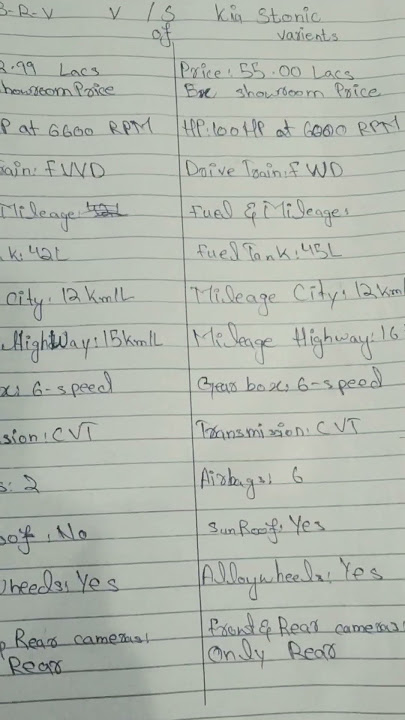 B-R-V V/S Kia Stonic
of varients
.99 Lacs Price: 55.00 Lacs
showroom Price Exe showroom Price
P at 6600 RPM HP:100HP at 6000 RPM
rain: FWD Drive Train: FWD
Mileage Fuel & Mileage:
k: 42L Fuel Tank: 45L
City: 12 km/L Mileage City: 12 km
Highway: 15km/L Mileage Highway: 16
x: 6-speed Gear box: 6-speed
sion: CVT Transmission: CVT
s: 2 Airbags: 6
oof: No SunRoof: Yes
wheels: Yes Alloywheels: Yes
p Rear cameras: front & Rear cameras:
Rear Only Rear